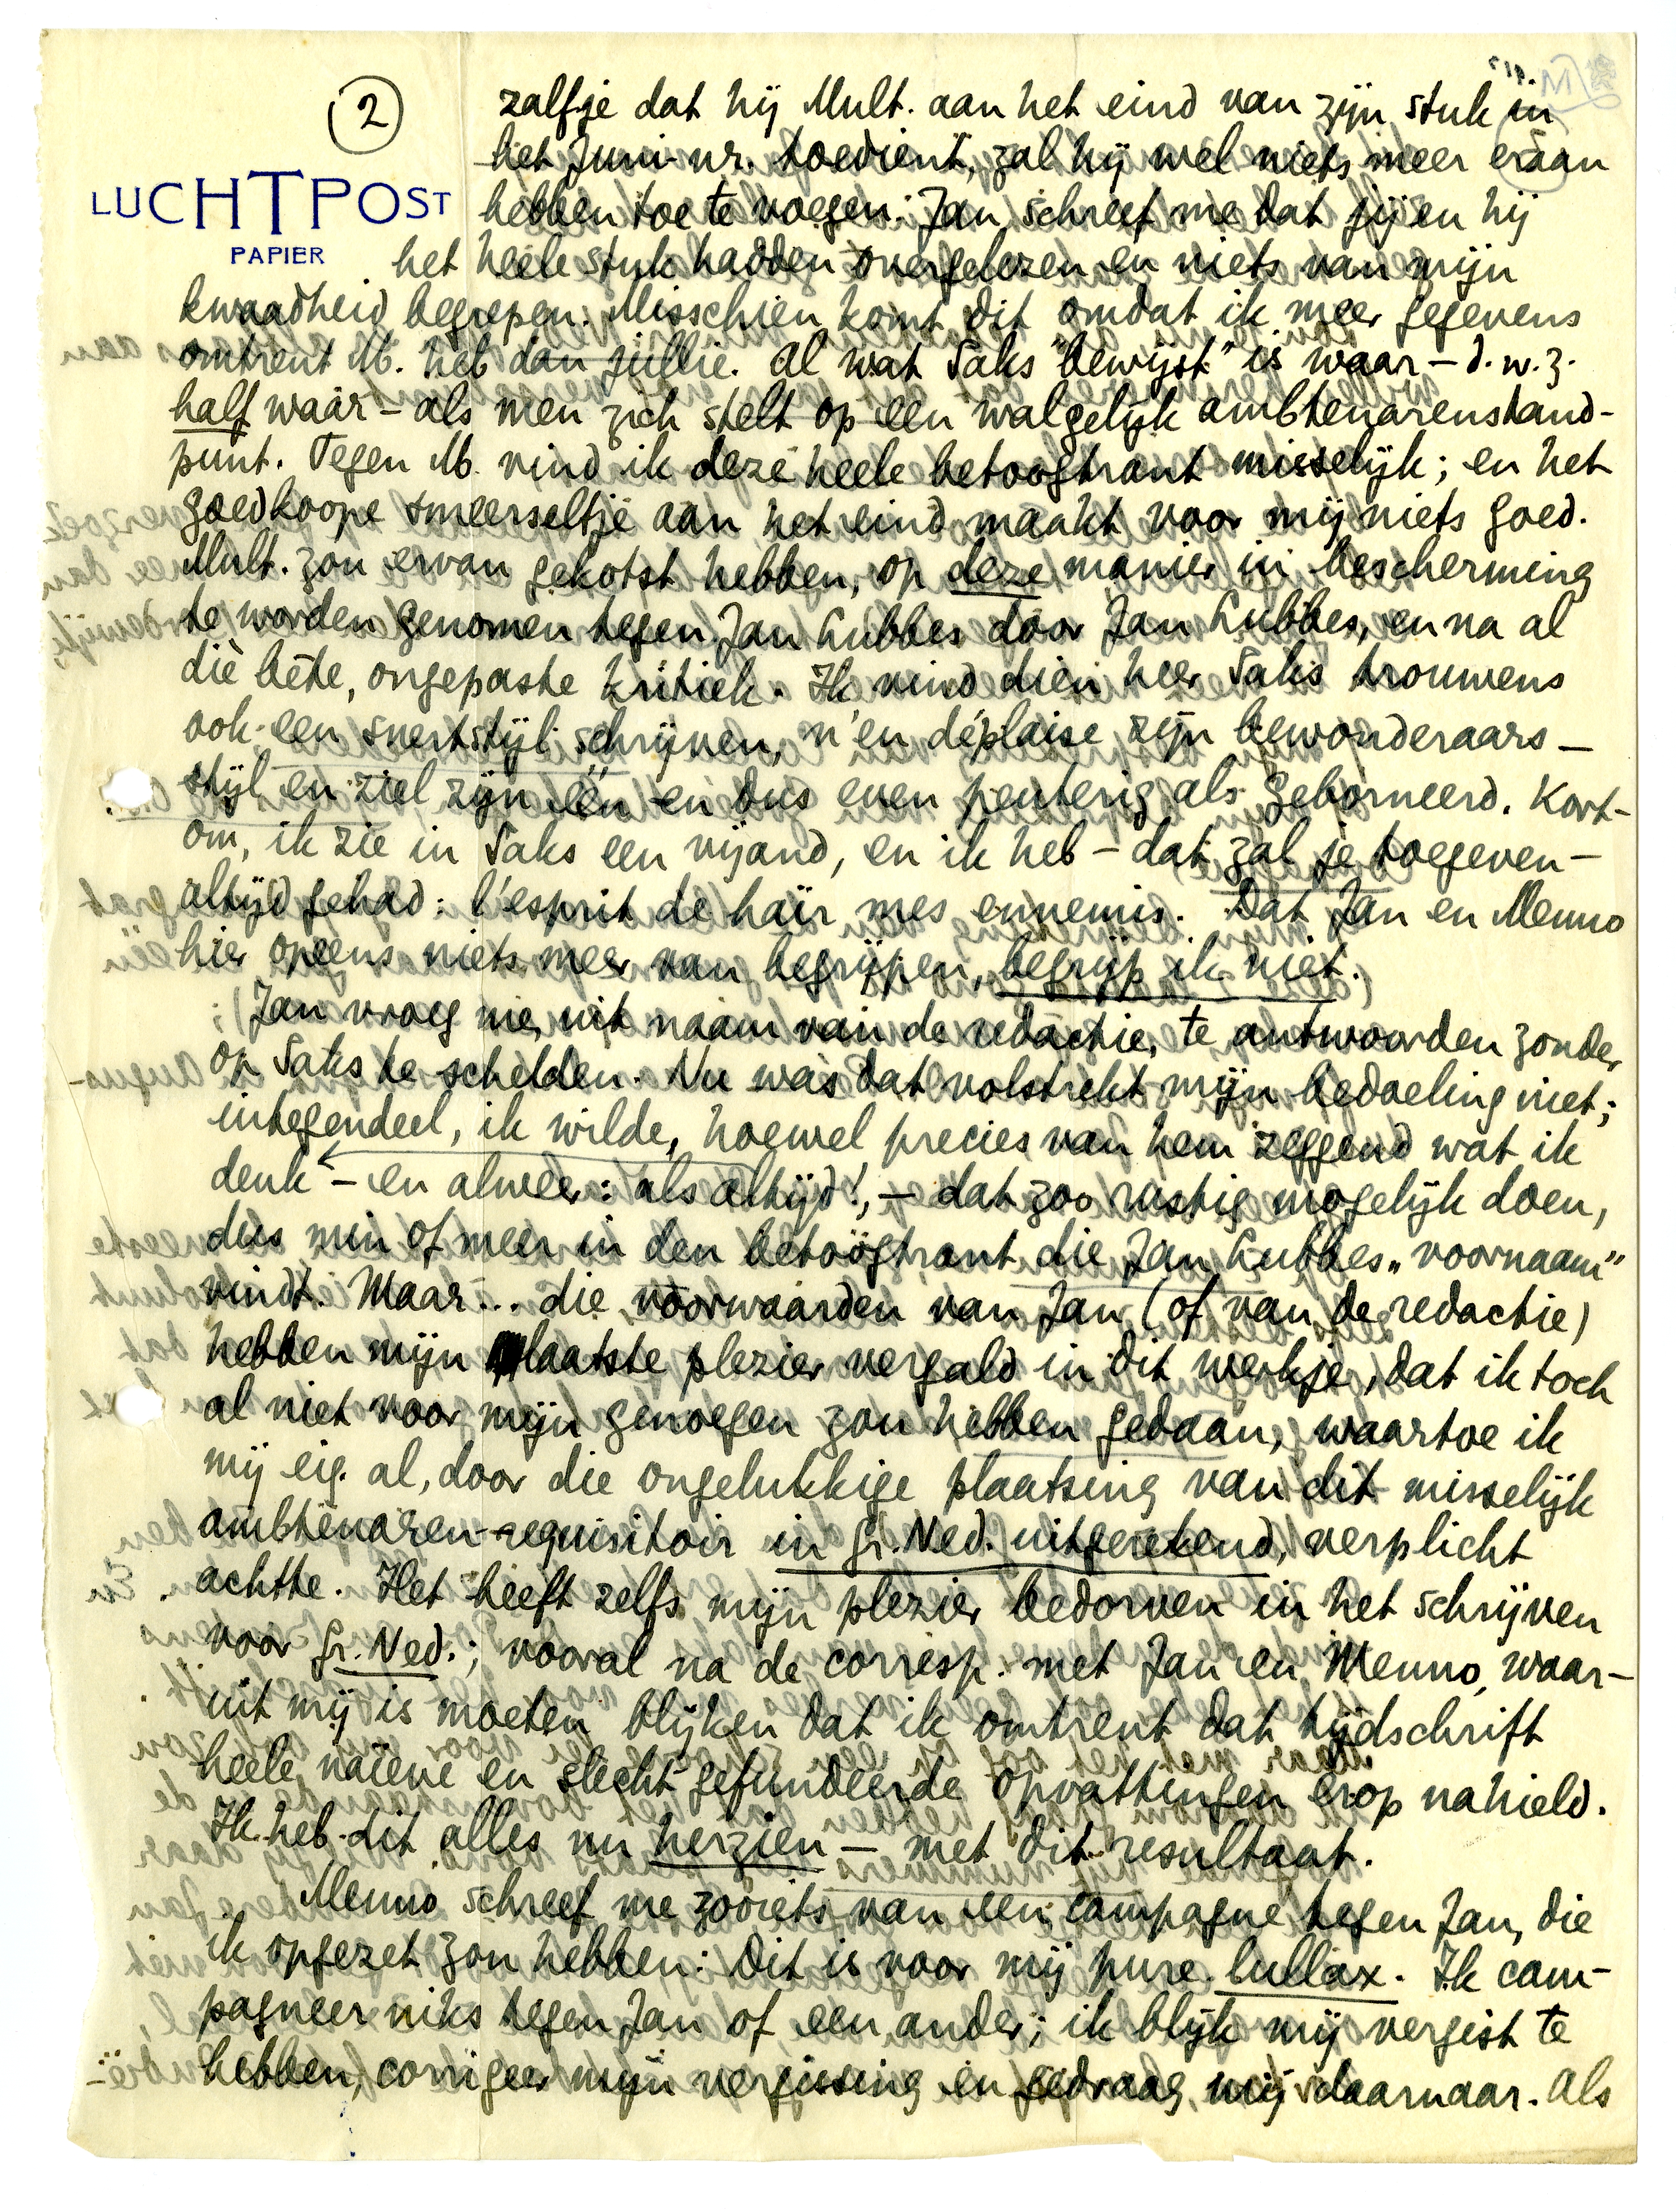 2
LUCHTPOST
PAPIER
zalfje dat hij Mult. aan het eind van zijn stuk in
het Juni-nr. toedient, zal hij wel niets meer eraan
hebben toe te voegen. Jan schreef me dat jij en hij
het heele stuk hadden overgelezen en niets van mijn
kwaadheid begrepen. Misschien komt dit omdat ik meer gegevens
omtrent M. heb dan jullie. Al wat Saks "bewijst" is waar — d.w.z.
half waar — als men zich stelt op een walgelijk ambtenarenstand-
punt. Tegen M. vind ik deze heele betoogtrant misselijk; en het
goedkoope smeerseltje aan het eind maakt voor mij niets goed.
Mult. zou ervan gekotst hebben, op deze manier in bescherming
te worden genomen tegen Jan Lubbes door Jan Lubbes, en na al
die bête, ongepaste kritiek. Ik vind dien heer Saks trouwens
ook een snertstijl schrijven, n'en déplaise zijn bewonderaars —
stijl en ziel zijn één en dus even peuterig als geborneerd. Kort-
om, ik zie in Saks een vijand, en ik heb — dat zal je toegeven —
altijd gehad: l'esprit de haïr mes ennemis. Dat Jan en Menno
hier opeens niets meer van begrijpen, begrijp ik niet.
Jan vroeg me, uit naam van de redactie, te antwoorden zonder
op Saks te schelden. Nu was dat volstrekt mijn bedoeling niet;
integendeel, ik wilde, hoewel precies van hem zeggend wat ik
denk — en alweer: als altijd!, — dat zoo rustig mogelijk doen,
dus min of meer in den betoogtrant die Jan Lubbes „voornaam"
vindt. Maar... die voorwaarden van Jan (of van de redactie)
hebben mijn laatste plezier vergald in dit werkje, dat ik toch
al niet voor mijn genoegen zou hebben gedaan, waartoe ik
mij eig. al, door die ongelukkige plaatsing van dit misselijk
ambtenaren-requisitoir in Gr. Ned. uitgerekend, verplicht
achtte. Het heeft zelfs mijn plezier bedorven in het schrijven
voor Gr. Ned.; vooral na de corresp. met Jan en Menno, waar-
uit mij is moeten blijken dat ik omtrent dat tijdschrift
heele naïeve en slecht gefundeerde opvattingen erop nahield.
Ik heb dit alles nu herzien — met dit resultaat.
Menno schreef me zooiets van een campagne tegen Jan, die
ik opgezet zou hebben: Dit is voor mij pure lullax. Ik cam-
pagneer niks tegen Jan of een ander; ik blijk mij vergist te
hebben, corrigeer mijn vergissing en gedraag mij daarnaar. Als